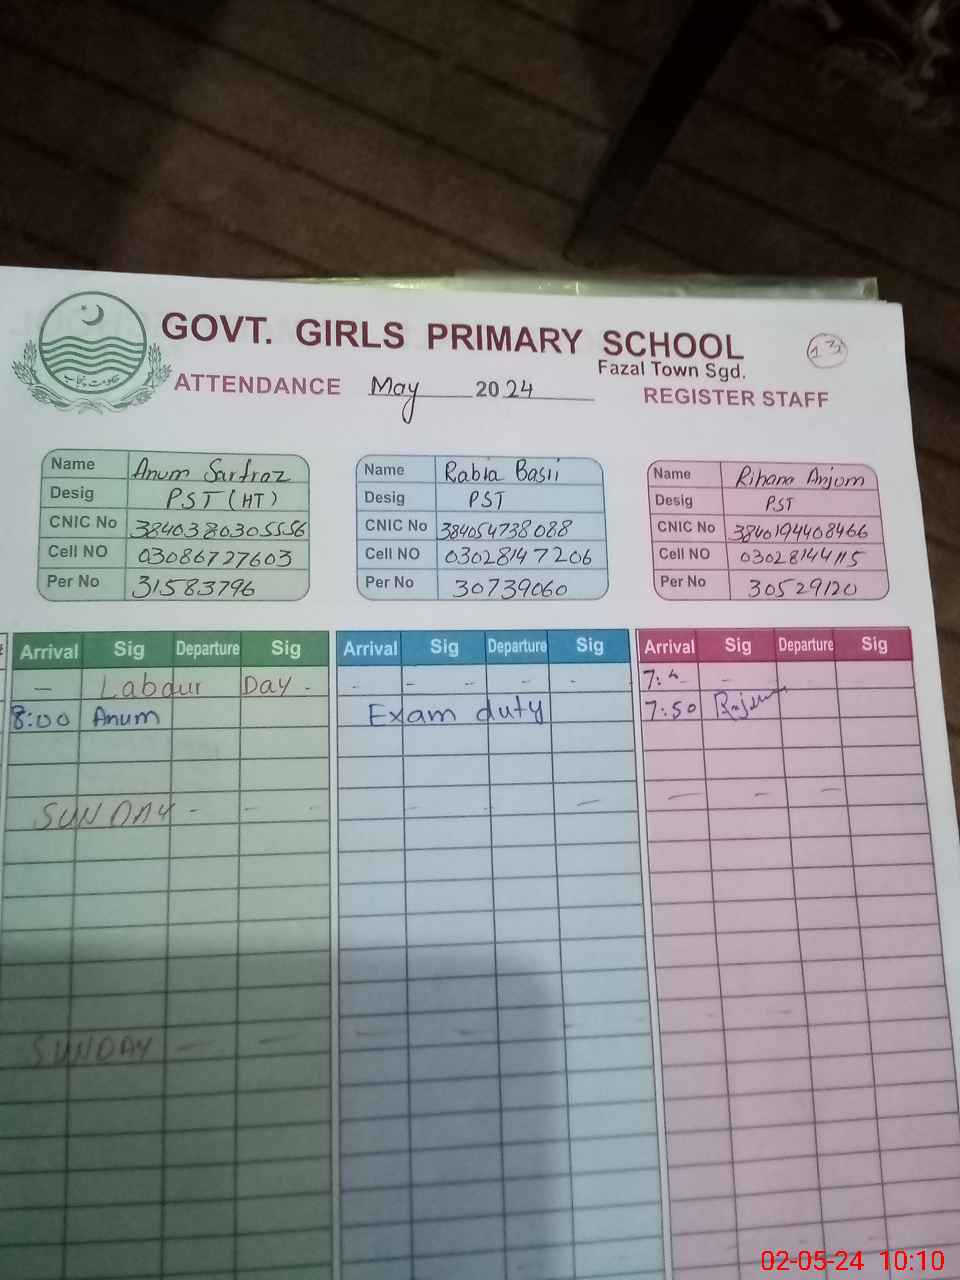 GOVT. GIRLS PRIMARY SCHOOL
Fazal Town Sgd.
ATTENDANCE May 2024 REGISTER STAFF
حکومت پنجاب
Name Anum Sarfraz
Desig PST (HT)
CNIC No 3840380305556
Cell NO 03086727603
Per No 31583796
Name Rabia Basii
Desig PST
CNIC No 384054738088
Cell NO 03028147206
Per No 30739060
Name Rihana Anjum
Desig PST
CNIC No 3840194408466
Cell NO 03028144115
Per No 30529120
Arrival Sig Departure Sig Arrival Sig Departure Sig Arrival Sig Departure Sig
- Labour Day - - - - - 7:4 - -
8:00 Anum Exam duty 7:50
SUNDAY - - - - - - - - -
SUNDAY - - - -
02-05-24 10:10